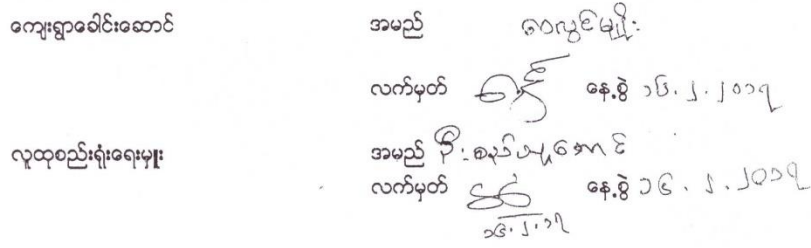 ကျေးရွာခေါင်းဆောင် အမည် စာလွင်မျိုး
လက်မှတ် နေ့စွဲ ၁၆.၂.၂၀၁၇
လူထုစည်းရုံးရေးမှူး အမည် ဦးစန်းယုအောင်
လက်မှတ် နေ့စွဲ ၁၆.၂.၂၀၁၇
၁၆.၂.၁၇